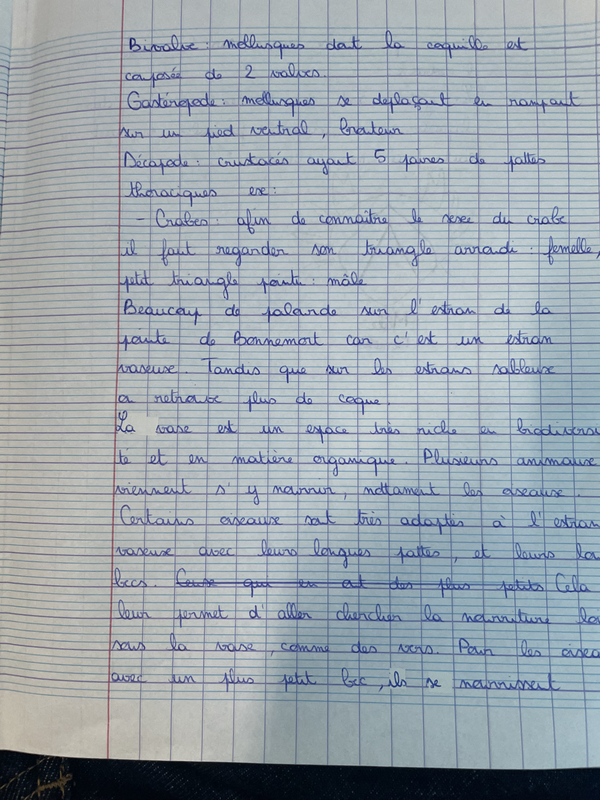 Bivalve : mollusques dont la coquille est
composée de 2 valves.
Gastéropode : mollusques se deplaçant en rampant
sur un pied ventral, brouteur
Décapode : crustacés ayant 5 paires de pattes
thoraciques exe :
- Crabes : afin de connaitre le sexe du crabe
il faut regarder son triangle arrondi : femelle,
petit triangle pointu : mâle
Beaucoup de palourde sur l'estran de la
pointe de Bonnemort car c'est un estran
vaseux. Tandis que sur les estrans sableux
on retrouve plus de coque.
La vase est un espace très riche en biodiversi
té et en matière organique. Plusieurs animaux
viennent s'y nourrir, nottament les oiseaux.
Certains oiseaux sont très adaptés à l'estran
vaseux avec leurs longues pattes, et leurs lon
becs. Ceux qui en ont des plus petits Cela
leur permet d'aller chercher la nourriture lo
sous la vase, comme des vers. Pour les oisea
avec un plus petit bec, ils se nourrissent